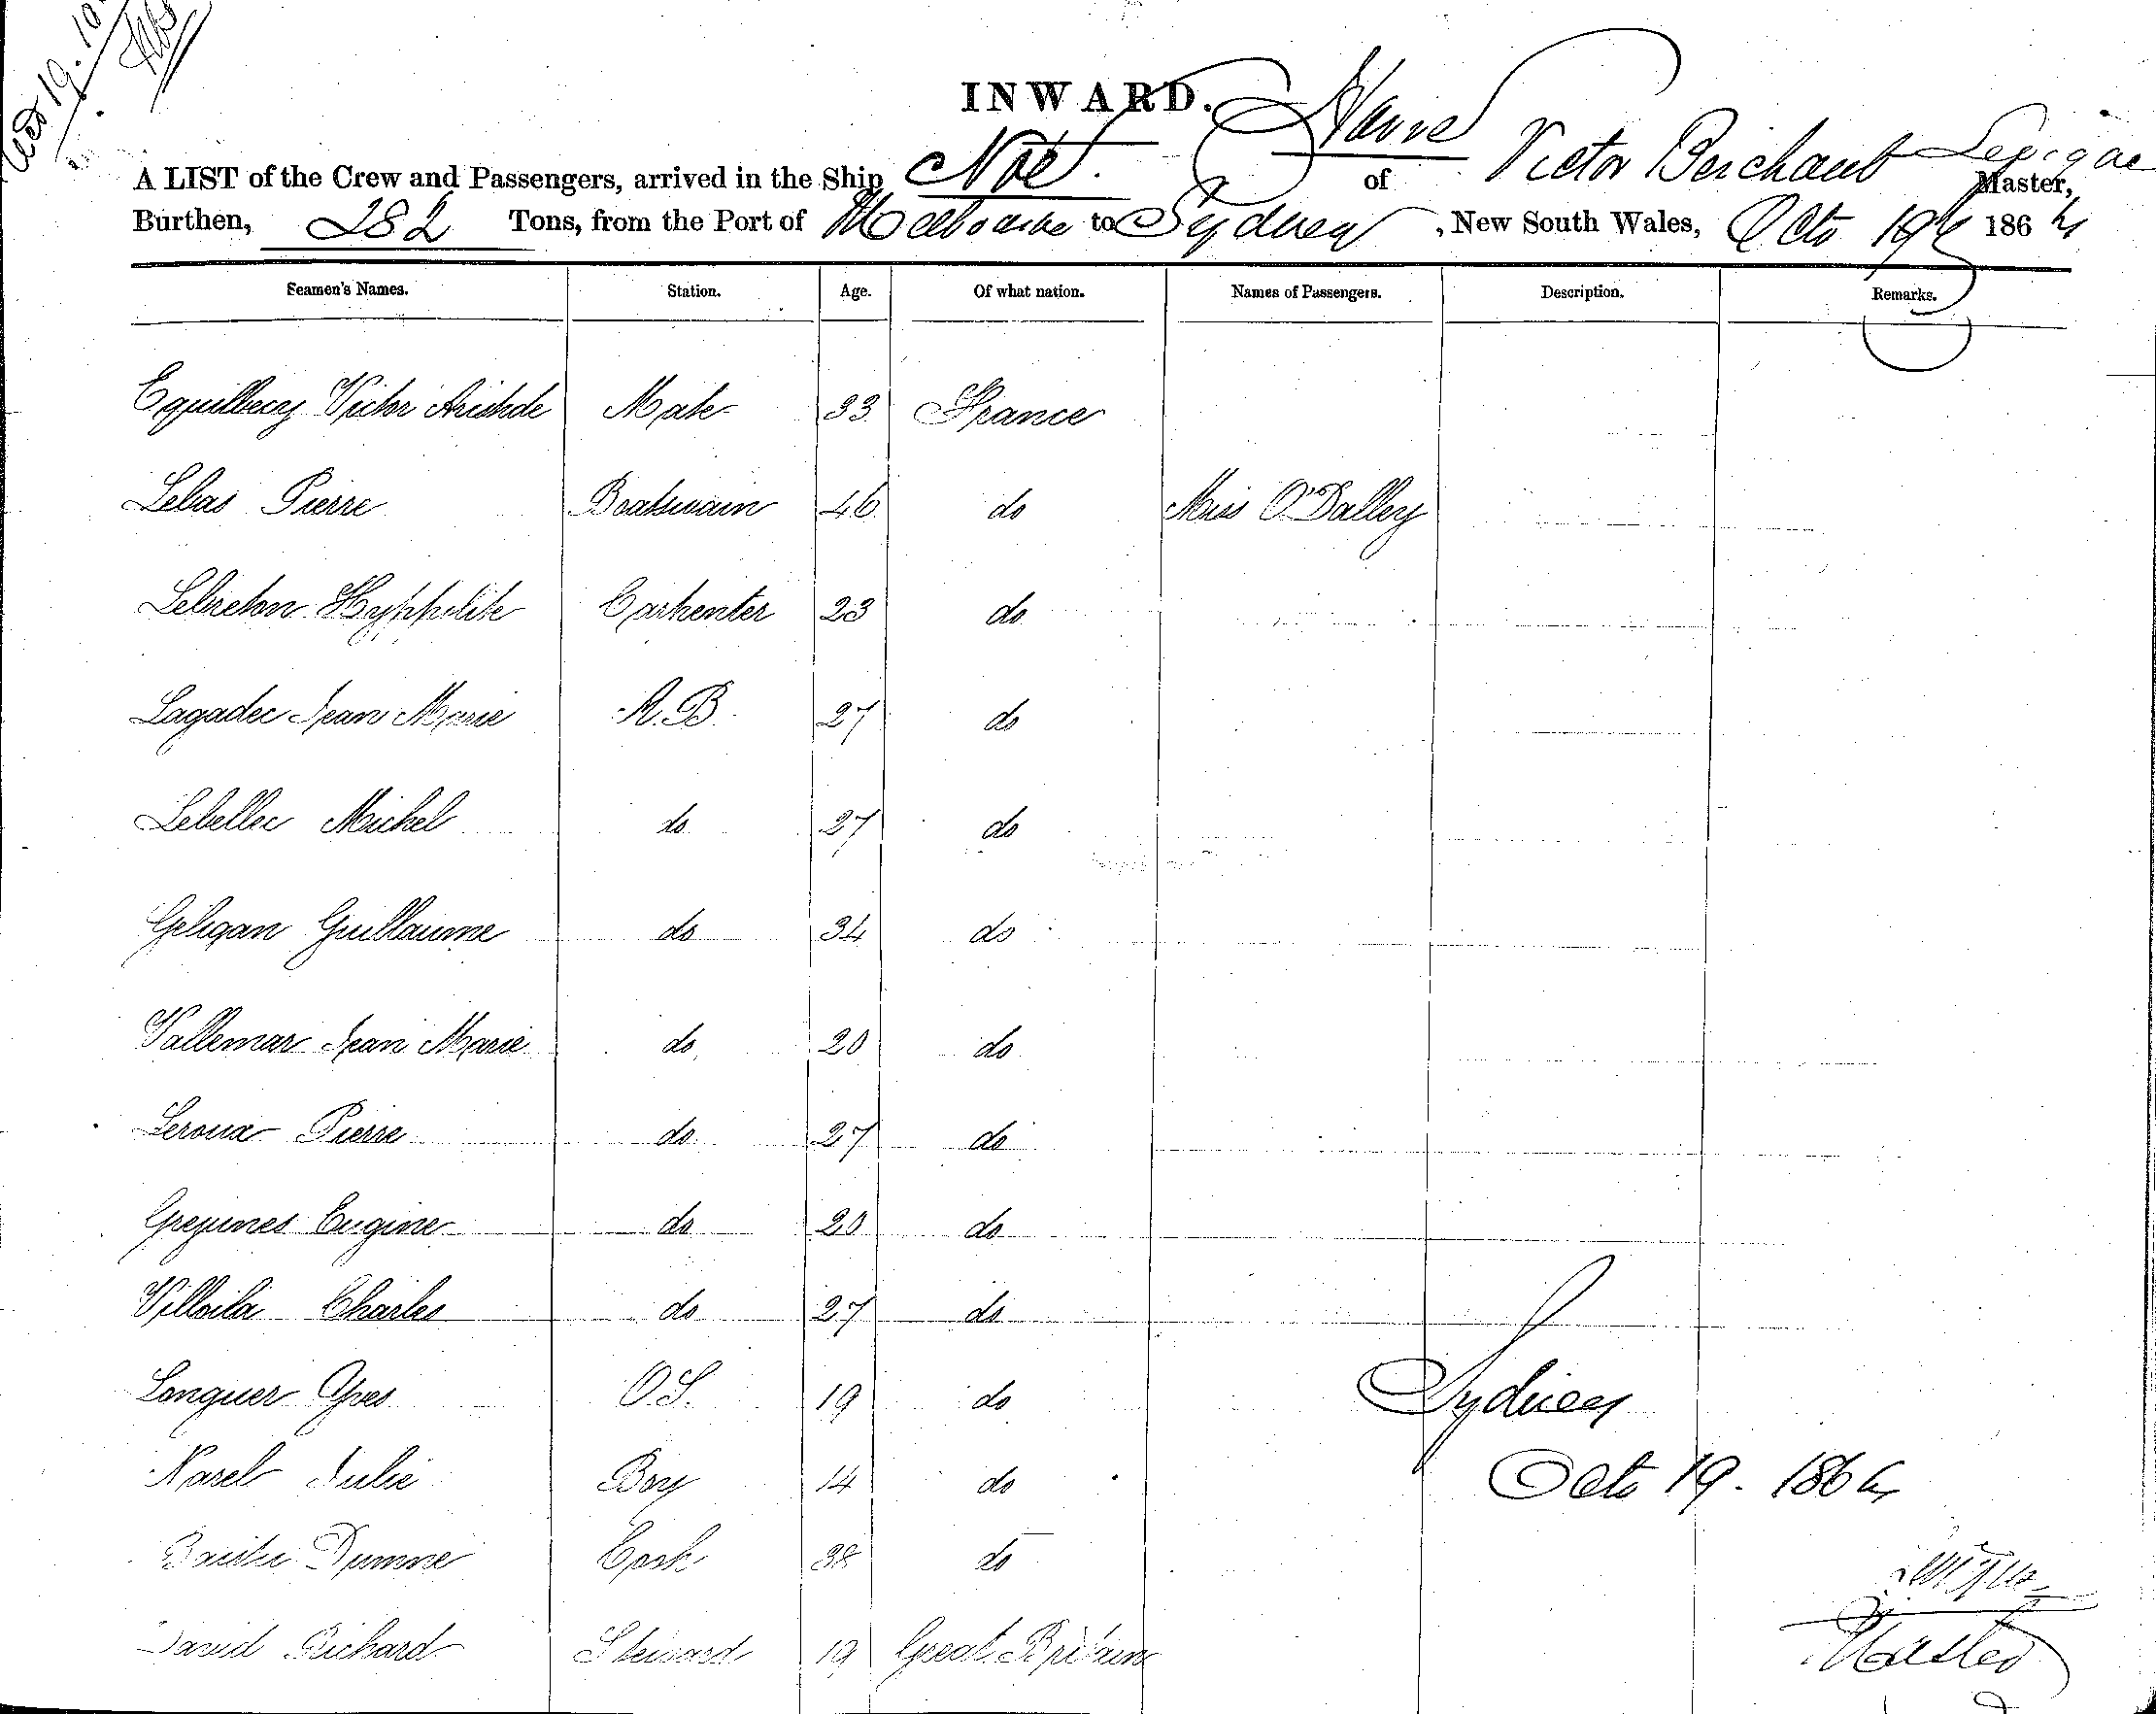 Octo 19.
INWARD.
A LIST of the Crew and Passengers, arrived in the Ship Noe. of Havre Victor Master,
Burthen, 282 Tons, from the Port of Melbourne to Sydney, New South Wales, Octo 19th 1864
Seamen's Names. Station. Age. Of what nation. Names of Passengers. Description. Remarks.
Equilbecy Victor Aristide Mate 33 France
Lebas Pierre Boatswain 46 do Miss O'Dalley
Lebreton Hyppolite Carpenter 23 do
Lagadec Jean Marie A.B. 27 do
Lebellec Michel do 27 do
Geligan Guillaume do 34 do
Vallemar Jean Marie do 20 do
Leroux Pierre do 27 do
Eugine do 20 do
Charles do 27 do
Lonquer Yves O.S. 19 do
Narel Julie Boy 14 do
Cook 38 do
David Richard Steward 19 Great Britain
Sydney
Octo 19. 1864
Master